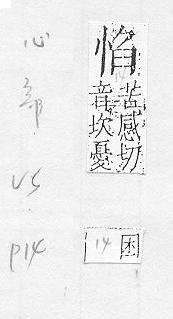 惂
苦感切
音坎憂
14 困
心部 VS P14